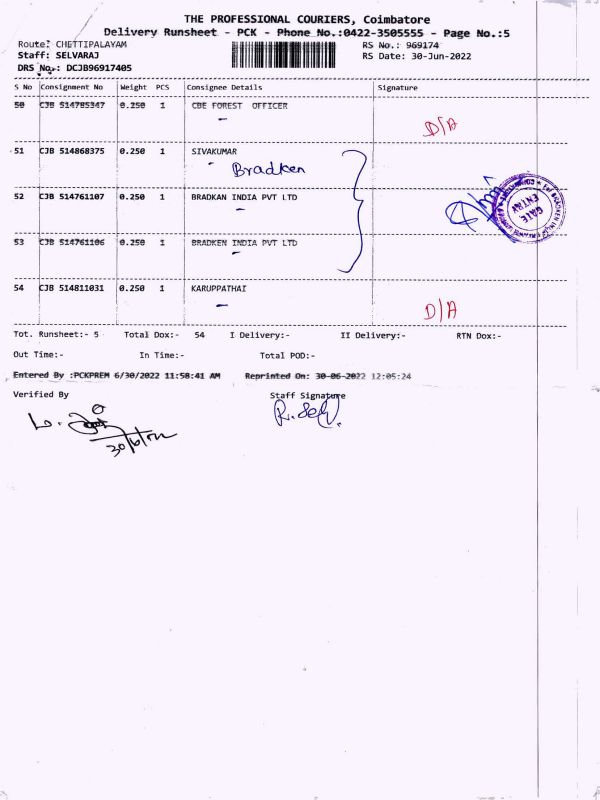 THE PROFESSIONAL COURIERS, Coimbatore
Delivery Runsheet - PCK - Phone No.:0422-3505555 - Page No.:5
Route: CHETTIPALAYAM RS No.: 969174
Staff: SELVARAJ RS Date: 30-Jun-2022
DRS No.: DCJB96917405
S No Consignment No Weight PCS Consignee Details Signature
50 CJB 514785347 0.250 1 CBE FOREST OFFICER
D/A
51 CJB 514868375 0.250 1 SIVAKUMAR
Bradken
52 CJB 514761107 0.250 1 BRADKAN INDIA PVT LTD
GATE ENTRY
53 CJB 514761106 0.250 1 BRADKEN INDIA PVT LTD
54 CJB 514811031 0.250 1 KARUPPATHAI
D/A
Tot. Runsheet:- 5 Total Dox:- 54 I Delivery:- II Delivery:- RTN Dox:-
Out Time:- In Time:- Total POD:-
Entered By :PCKPREM 6/30/2022 11:58:41 AM Reprinted On: 30-06-2022 12:05:24
Verified By Staff Signature
R. Selv
30/6/22